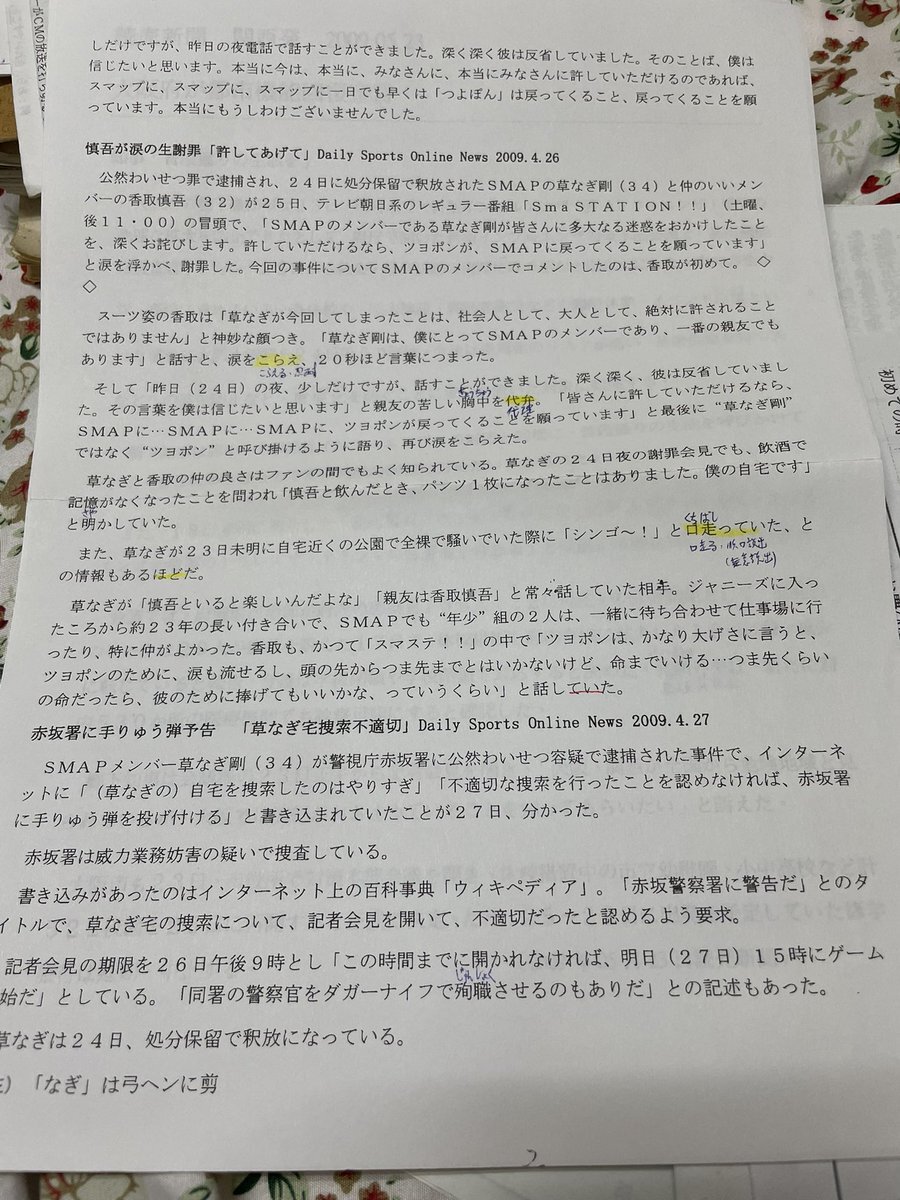 しだけですが、昨日の夜電話で話すことができました。深く深く彼は反省していました。そのことば、僕は
信じたいと思います。本当に今は、本当に、みなさんに、本当にみなさんに許していただけるのであれば、
スマップに、スマップに、スマップに一日でも早くは「つよぽん」は戻ってくること、戻ってくることを願
っています。本当にもうしわけございませんでした。
慎吾が涙の生謝罪「許してあげて」Daily Sports Online News 2009.4.26
公然わいせつ罪で逮捕され、２４日に処分保留で釈放されたＳＭＡＰの草なぎ剛（３４）と仲のいいメン
バーの香取慎吾（３２）が２５日、テレビ朝日系のレギュラー番組「ＳｍａＳＴＡＴＩＯＮ！！」（土曜、
後１１・００）の冒頭で、「ＳＭＡＰのメンバーである草なぎ剛が皆さんに多大なる迷惑をおかけしたこと
を、深くお詫びします。許していただけるなら、ツヨポンが、ＳＭＡＰに戻ってくることを願っています」
と涙を浮かべ、謝罪した。今回の事件についてＳＭＡＰのメンバーでコメントしたのは、香取が初めて。　◇
◇
スーツ姿の香取は「草なぎが今回してしまったことは、社会人として、大人として、絶対に許されること
ではありません」と神妙な顔つき。「草なぎ剛は、僕にとってＳＭＡＰのメンバーであり、一番の親友でも
あります」と話すと、涙をこらえ、２０秒ほど言葉につまった。
こらえる:
そして「昨日（２４日）の夜、少しだけですが、話すことができました。深く深く、彼は反省していまし
た。その言葉を僕は信じたいと思います」と親友の苦しい胸中を代弁。「皆さんに許していただけるなら、
きょうちゅう
ＳＭＡＰに…ＳＭＡＰに…ＳＭＡＰに、ツヨポンが戻ってくることを願っています」と最後に“草なぎ剛”
ではなく“ツヨポン”と呼び掛けるように語り、再び涙をこらえた。
草なぎと香取の仲の良さはファンの間でもよく知られている。草なぎの２４日夜の謝罪会見でも、飲酒で
記憶がなくなったことを問われ「慎吾と飲んだとき、パンツ１枚になったことはありました。僕の自宅です」
と明かしていた。
くちばし
また、草なぎが２３日未明に自宅近くの公園で全裸で騒いでいた際に「シンゴ～！」と口走っていた、と
口走る:
の情報もあるほどだ。
草なぎが「慎吾といると楽しいんだよな」「親友は香取慎吾」と常々話していた相手。ジャニーズに入っ
たころから約２３年の長い付き合いで、ＳＭＡＰでも“年少”組の２人は、一緒に待ち合わせて仕事場に行
ったり、特に仲がよかった。香取も、かつて「スマステ！！」の中で「ツヨポンは、かなり大げさに言うと、
ツヨポンのために、涙も流せるし、頭の先からつま先までとはいかないけど、命までいける…つま先くらい
の命だったら、彼のために捧げてもいいかな、っていうくらい」と話していた。
赤坂署に手りゅう弾予告　「草なぎ宅捜索不適切」Daily Sports Online News 2009.4.27
ＳＭＡＰメンバー草なぎ剛（３４）が警視庁赤坂署に公然わいせつ容疑で逮捕された事件で、インターネ
ットに「（草なぎの）自宅を捜索したのはやりすぎ」「不適切な捜索を行ったことを認めなければ、赤坂署
に手りゅう弾を投げ付ける」と書き込まれていたことが２７日、分かった。
赤坂署は威力業務妨害の疑いで捜査している。
書き込みがあったのはインターネット上の百科事典「ウィキペディア」。「赤坂警察署に警告だ」とのタ
イトルで、草なぎ宅の捜索について、記者会見を開いて、不適切だったと認めるよう要求。
記者会見の期限を２６日午後９時とし「この時間までに開かれなければ、明日（２７日）１５時にゲーム
じゅんしょく
始だ」としている。「同署の警察官をダガーナイフで殉職させるのもありだ」との記述もあった。
草なぎは２４日、処分保留で釈放になっている。
「なぎ」は弓ヘンに剪
2